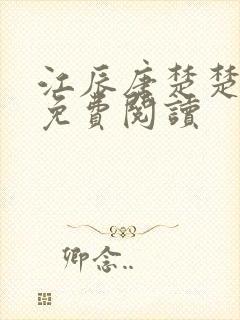 江辰唐楚楚
免費閱讀
卿念..